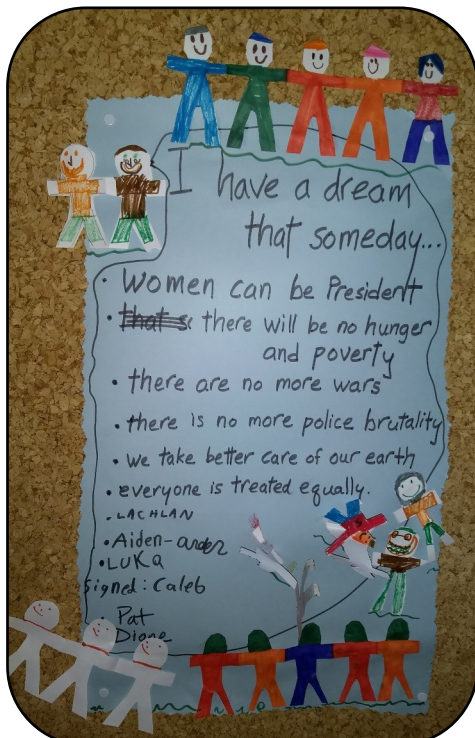 I have a dream
that someday...
• Women can be President
• that s there will be no hunger
and poverty
• there are no more wars
• there is no more police brutality
• we take better care of our earth
• everyone is treated equally.
• LACHLAN
• Aiden-
• LUKA
Signed: Caleb
Pat
Diane